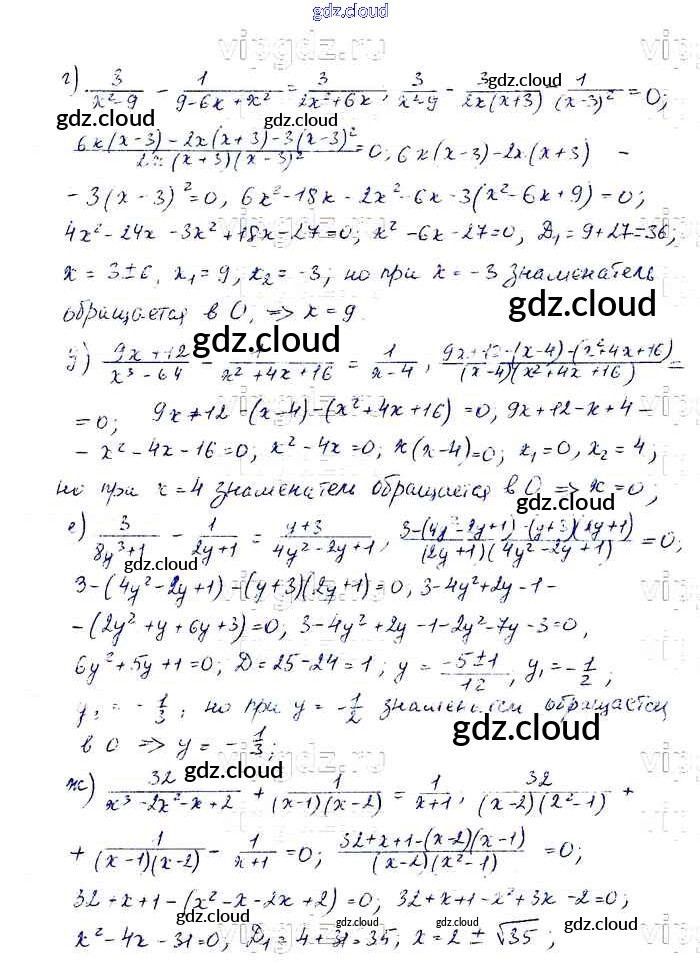 gdz.cloud
г) 3/(x²-9) - 1/(9-6x+x²) = 3/(2x²+6x), 3/(x²-9) - 3/(2x(x+3)) - 1/(x-3)² = 0;
(6x(x-3)-2x(x+3)-3(x-3)²)/(2x(x+3)(x-3)²) = 0; 6x(x-3)-2x(x+3) -
-3(x-3)²=0, 6x²-18x-2x²-6x-3(x²-6x+9)=0;
4x²-24x-3x²+18x-27=0; x²-6x-27=0; D₁=9+27=36;
x=3±6, x₁=9, x₂=-3; но при x=-3 знаменатель
обращается в 0, => x=9
д) (9x+12)/(x³-64) - 1/(x²+4x+16) = 1/(x-4), (9x+12-(x-4)-(x²+4x+16))/((x-4)(x²+4x+16)) =
=0; 9x+12-(x-4)-(x²+4x+16)=0, 9x+12-x+4-
-x²-4x-16=0; x²-4x=0; x(x-4)=0; x₁=0, x₂=4;
но при x=4 знаменатель обращается в 0 => x=0;
е) 3/(8y³+1) - 1/(2y+1) = (y+3)/(4y²-2y+1), (3-(4y²-2y+1)-(y+3)(2y+1))/((2y+1)(4y²-2y+1)) = 0;
3-(4y²-2y+1)-(y+3)(2y+1)=0, 3-4y²+2y-1-
-(2y²+y+6y+3)=0; 3-4y²+2y-1-2y²-7y-3=0,
6y²+5y+1=0; D=25-24=1; y=(-5±1)/12, y₁=-1/2;
y₂=-1/3; но при y=-1/2 знаменатель обращается
в 0 => y=-1/3;
ж) 32/(x³-2x²-x+2) + 1/((x-1)(x-2)) = 1/(x+1), 32/((x-2)(x²-1)) +
+ 1/((x-1)(x-2)) - 1/(x+1) = 0; (32+x+1-(x-2)(x-1))/((x-2)(x²-1)) = 0;
32+x+1-(x²-x-2x+2)=0; 32+x+1-x²+3x-2=0;
x²-4x-31=0, D₁=4+31=35, x=2±√35;